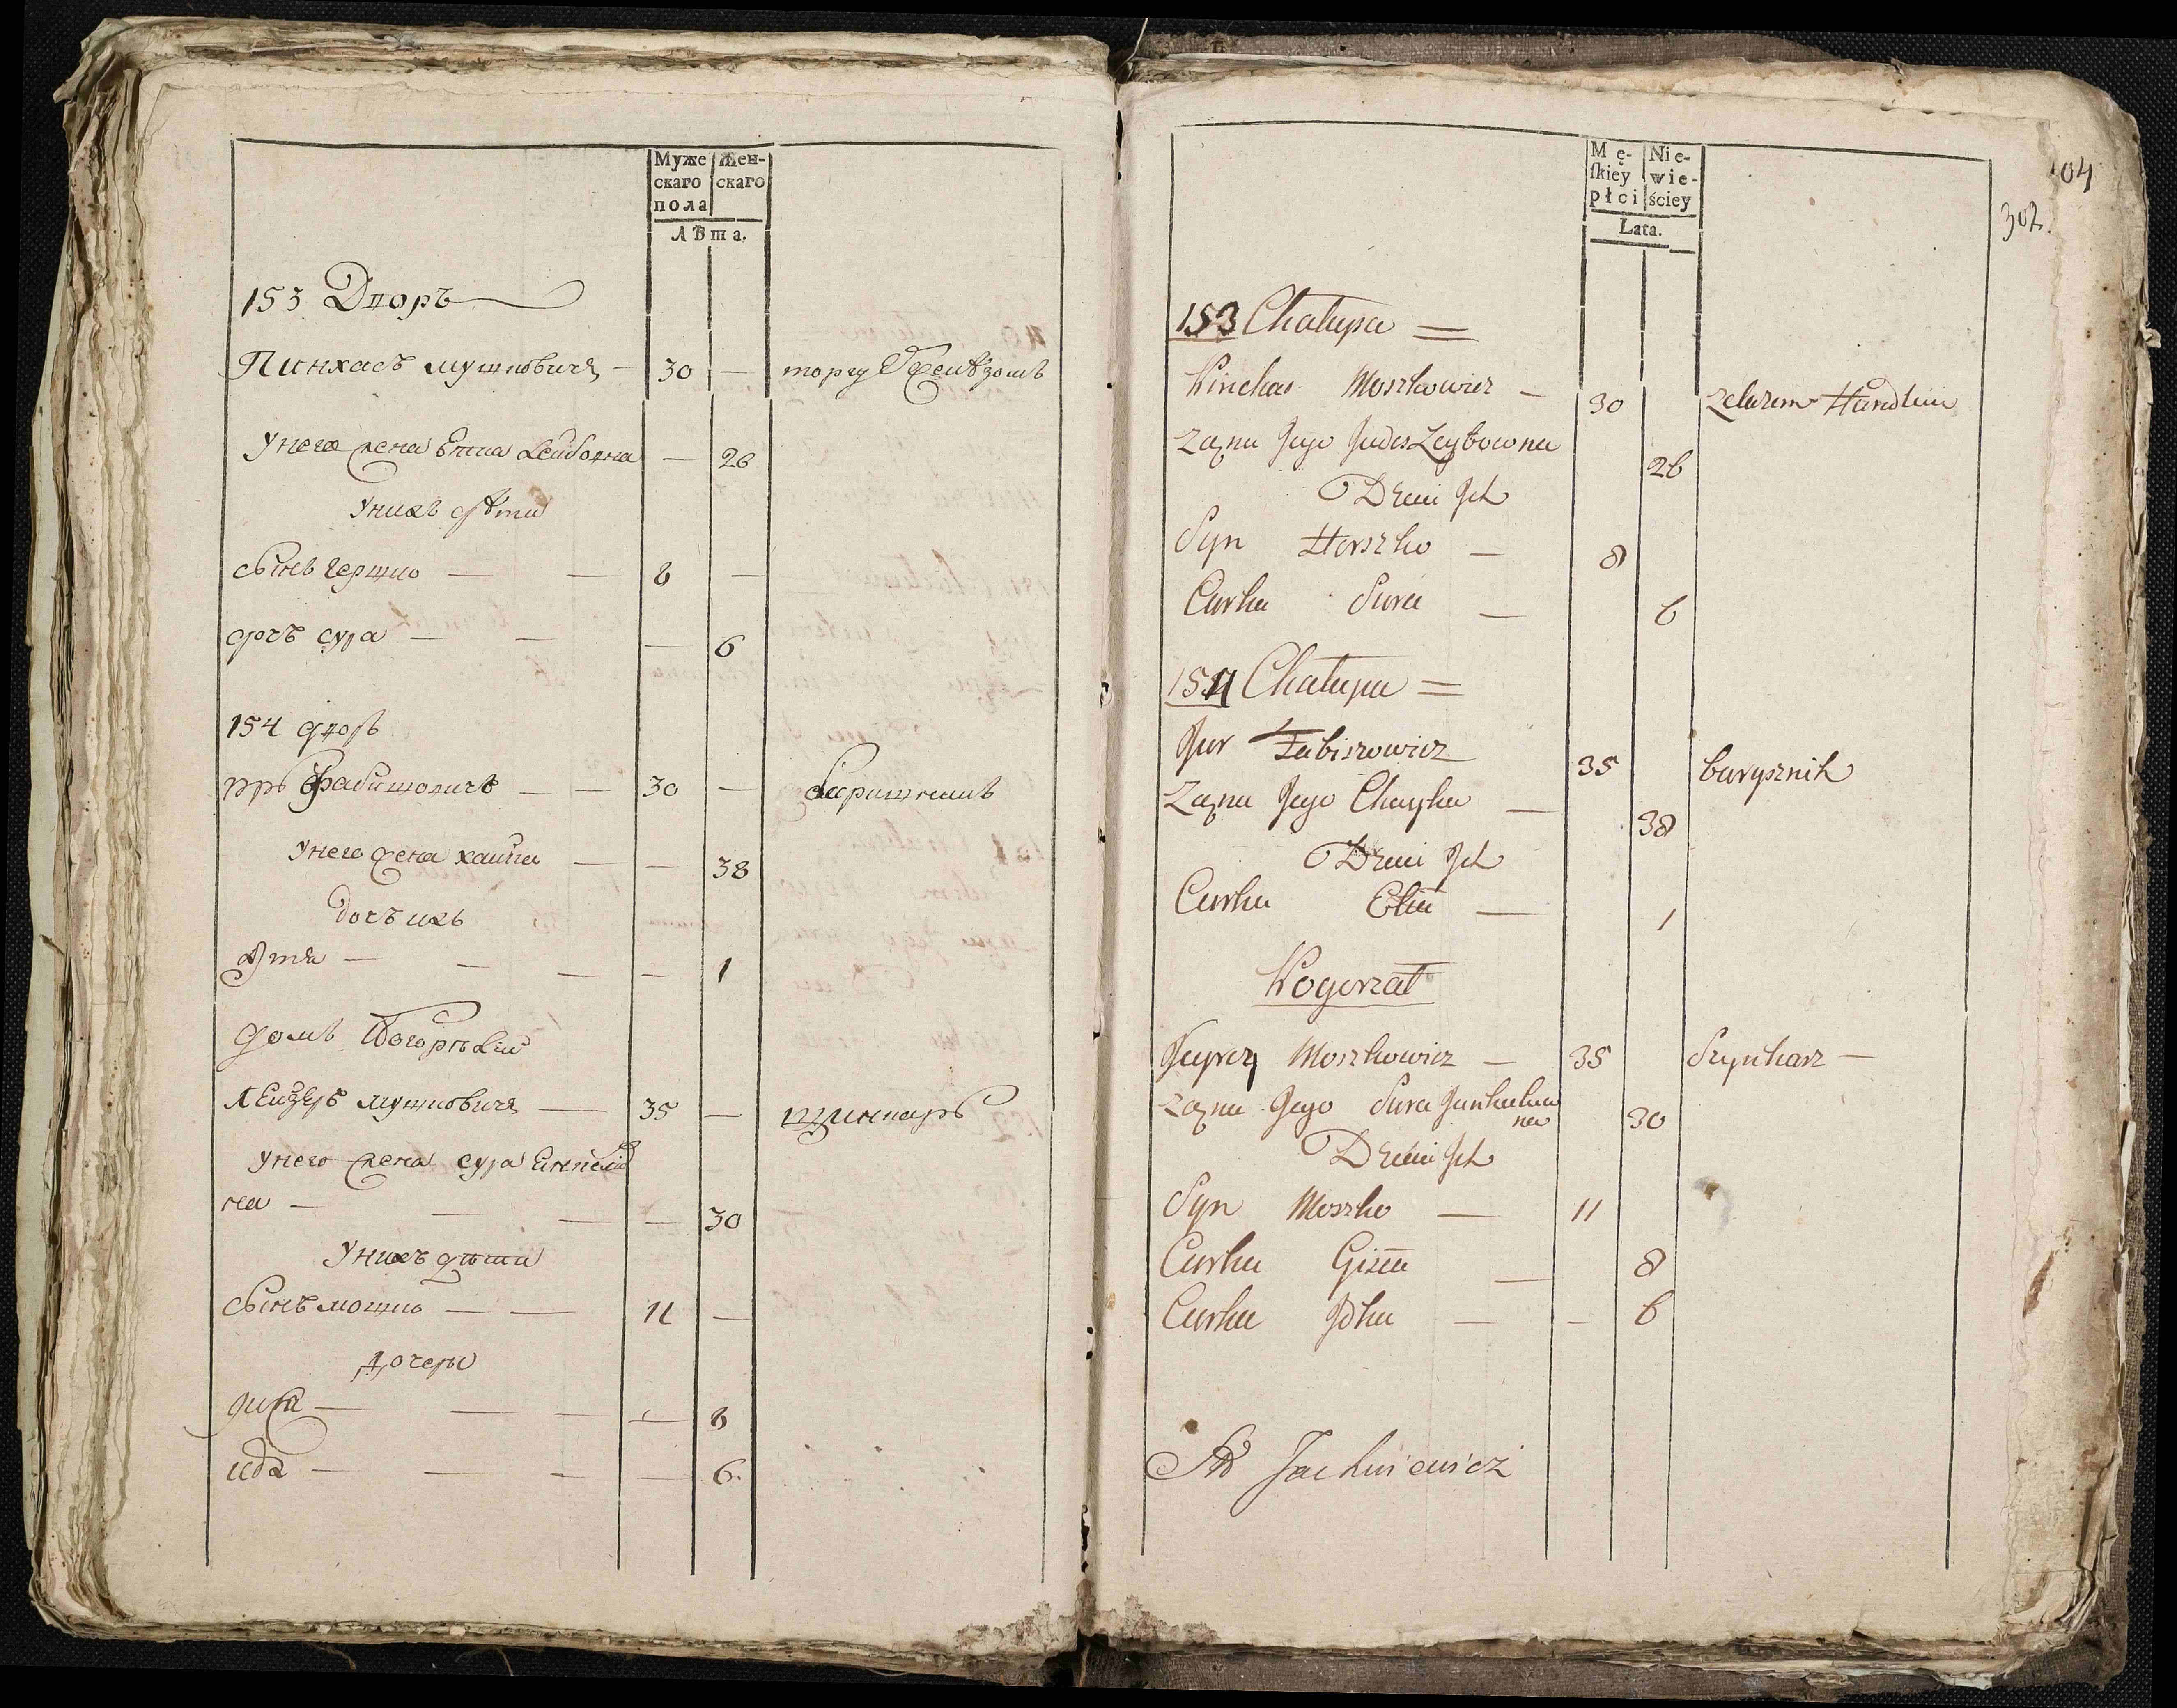 Муже Жен-
скаго скаго
пола
Лѣта.
153 Дворъ
Пинхасъ мушковичъ — 30 — торгу желѣзомъ
Унего жена Лейбовна — 26
Унихъ дѣти
сынъ гершко — — 8 —
дочь сура — — — 6
154 дворъ
Фабишовичъ — — 30 —
Унего жена хайка — — 38
дочь ихъ
— — — — 1
домъ
Лейзеръ мушковичъ — 35 — шинкаръ
Унего жена сура
на — — — — 30
Унихъ дѣти
Сынъ мошко — — 11 —
дочеры
— — — — 8
ида — — — — 6.
104
302.
Mę- Nie-
ſkiey wie-
płci ściey
Lata.
153 Chałupa =
Pinchas Moszkowicz — 30 zelazem Handluie
Zona Jego Judes Leybowna 26
Dzieci Jch
Syn Herszko — 8
Curka Sura — 6
154 Chałupa =
Fabiszowicz 35 barysznik
Zona Jego Chayka — 38
Dzieci Jch
Curka — 1
Moszkowicz — 35 Szynkarz —
Zona Jego Sura Jankielow
na 30
Dzieci Jch
Syn Moszko — 11
Curka — 8
Curka Jdka — — 6